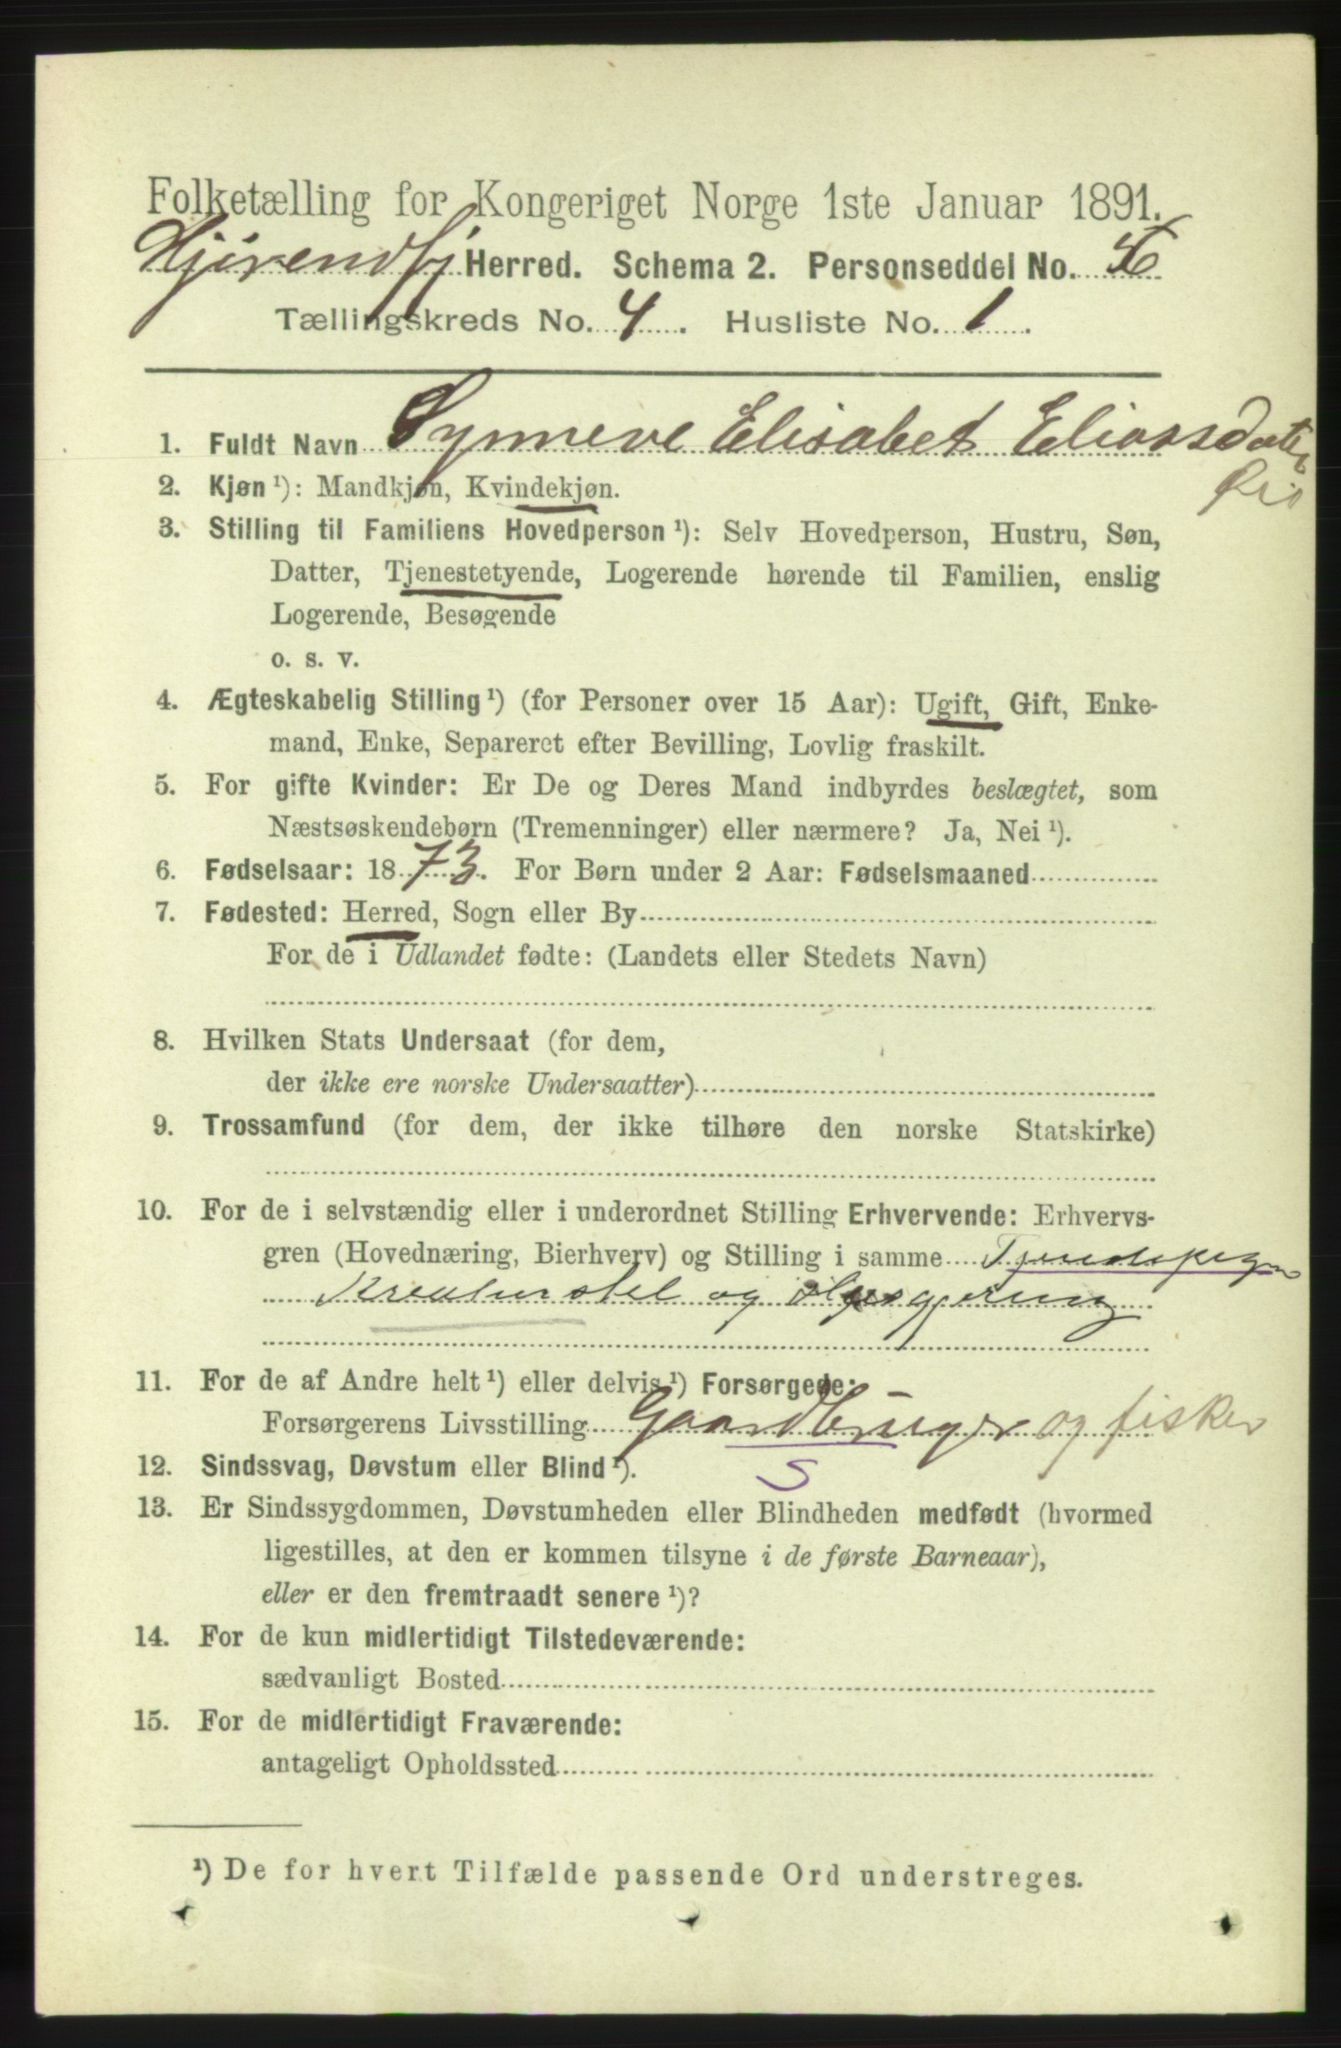 Folketælling for Kongeriget Norge 1ste Januar 1891.
Hjørendfj Herred. Schema 2. Personseddel No.
Tællingskreds No. 4. Husliste No. 1.
1. Fuldt Navn Synneve Elisabet Eliasdatter
2. Kjøn ¹): Mandkjøn, Kvindekjøn.
3. Stilling til Familiens Hovedperson ¹): Selv Hovedperson, Hustru, Søn,
Datter, Tjenestetyende, Logerende hørende til Familien, enslig
Logerende, Besøgende
o. s. v.
4. Ægteskabelig Stilling ¹) (for Personer over 15 Aar): Ugift, Gift, Enke-
mand, Enke, Separeret efter Bevilling, Lovlig fraskilt.
5. For gifte Kvinder: Er De og Deres Mand indbyrdes beslægtet, som
Næstsøskendebørn (Tremenninger) eller nærmere? Ja, Nei ¹).
6. Fødselsaar: 1873. For Børn under 2 Aar: Fødselsmaaned
7. Fødested: Herred, Sogn eller By
For de i Udlandet fødte: (Landets eller Stedets Navn)
8. Hvilken Stats Undersaat (for dem,
der ikke ere norske Undersaatter)
9. Trossamfund (for dem, der ikke tilhøre den norske Statskirke)
10. For de i selvstændig eller i underordnet Stilling Erhvervende: Erhvervs-
gren (Hovednæring, Bierhverv) og Stilling i samme Tjenestepige
Kreaturstel og Husgjerning
11. For de af Andre helt ¹) eller delvis ¹) Forsørgede:
Forsørgerens Livsstilling Gaardbruger og fisker
12. Sindssvag, Døvstum eller Blind ¹). S
13. Er Sindssygdommen, Døvstumheden eller Blindheden medfødt (hvormed
ligestilles, at den er kommen tilsyne i de første Barneaar),
eller er den fremtraadt senere ¹)?
14. For de kun midlertidigt Tilstedeværende:
sædvanligt Bosted
15. For de midlertidigt Fraværende:
antageligt Opholdssted
¹) De for hvert Tilfælde passende Ord understreges.